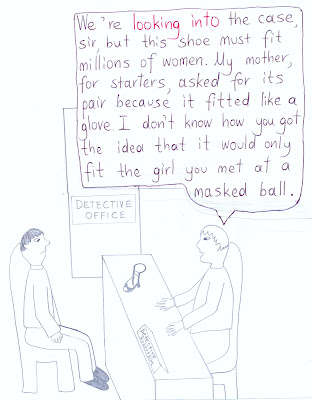 We're looking into the case,
sir, but this shoe must fit
millions of women. My mother,
for starters, asked for its
pair because it fitted like a
glove. I don't know how you got
the idea that it would only
fit the girl you met at a
masked ball.
DETECTIVE
OFFICE
DETECTIVE